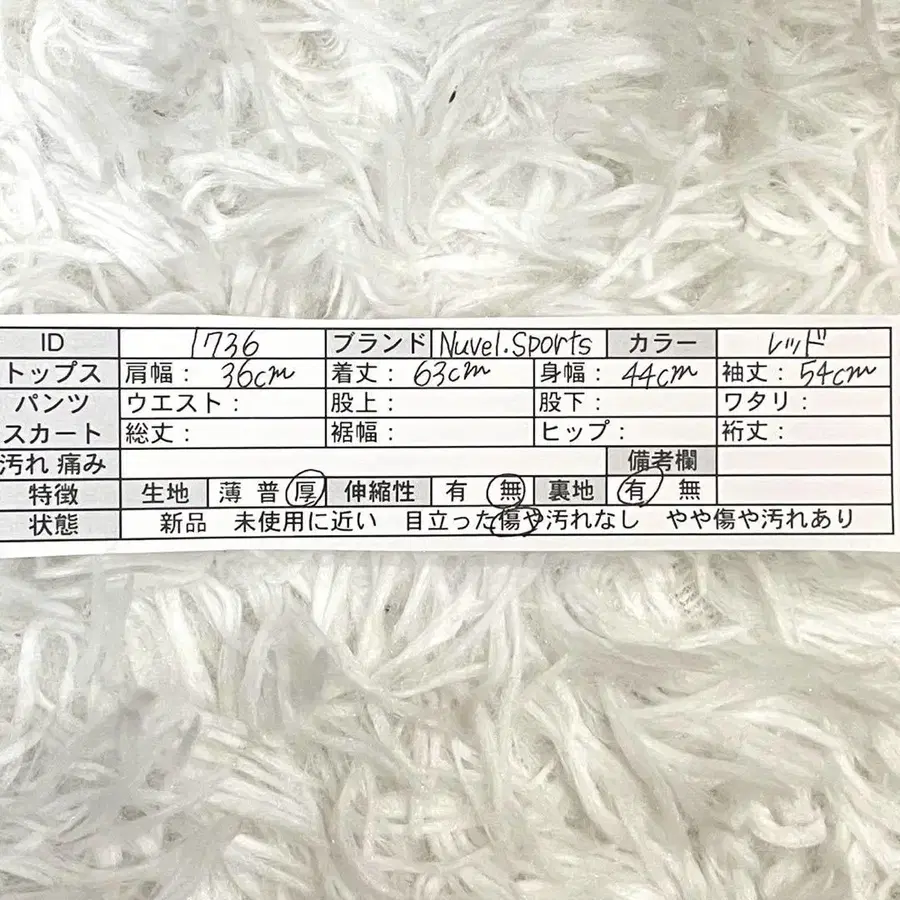 ID 1736 ブランド Nuvel.Sports カラー レッド
トップス 肩幅: 36cm 着丈: 63cm 身幅: 44cm 袖丈: 54cm
パンツ ウエスト: 股上: 股下: ワタリ:
スカート 総丈: 裾幅: ヒップ: 裄丈:
汚れ 痛み 備考欄
特徴 生地 薄 普 厚 伸縮性 有 無 裏地 有 無
状態 新品 未使用に近い 目立った傷や汚れなし やや傷や汚れあり